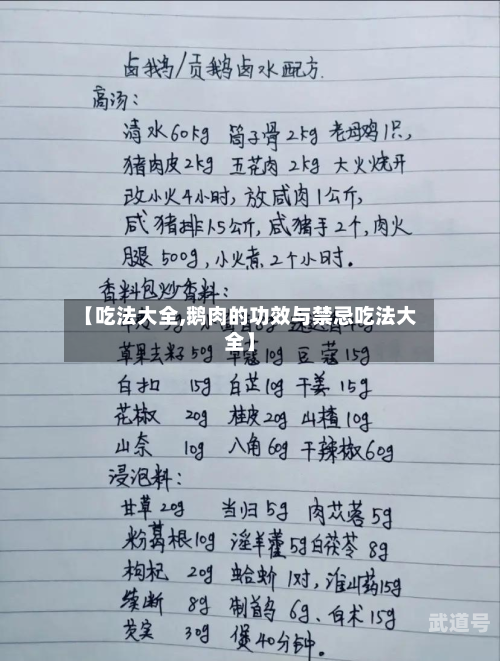 卤鹅/贡鹅卤水配方.
高汤:
清水60kg 筒子骨2kg 老母鸡1只,
猪肉皮2kg 五花肉2kg 大火烧开
改小火4小时, 放咸肉1公斤,
咸猪排1.5公斤, 咸猪手2个, 肉火
腿500g, 小火煮2个小时.
香料包炒香料:
【吃法大全,鹅肉的功效与禁忌吃法大
全】
草果去籽50g 草蔻10g 豆蔻15g
白扣 15g 白芷10g 干姜15g
花椒 20g 桂皮20g 山楂10g
山奈 10g 八角60g 干辣椒60g
浸泡料:
甘草20g 当归5g 肉苁蓉5g
粉葛根10g 淫羊藿5g 白茯苓8g
枸杞 20g 蛤蚧1对, 淮山药15g
续断 8g 制首乌 6g、白术15g
芡实 30g 煲40分钟。
武道号